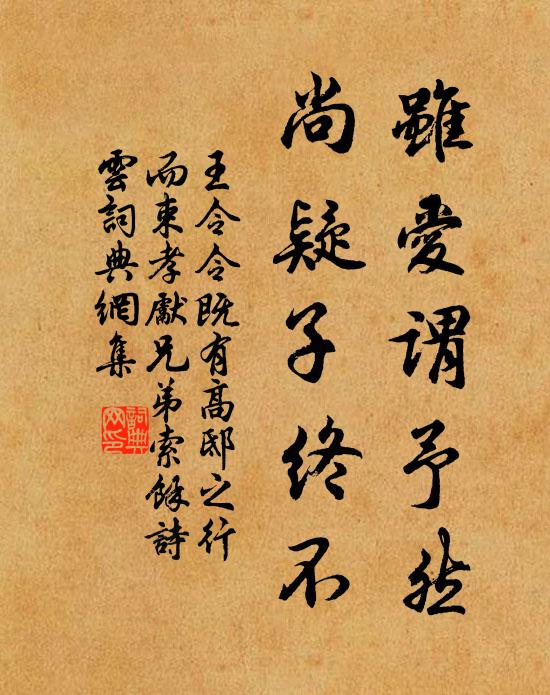 雖愛謂予然
尚疑子終不
王令令既有高邸之行
而東孝獻兄弟索餘詩
雲詞典網集
詞典網印